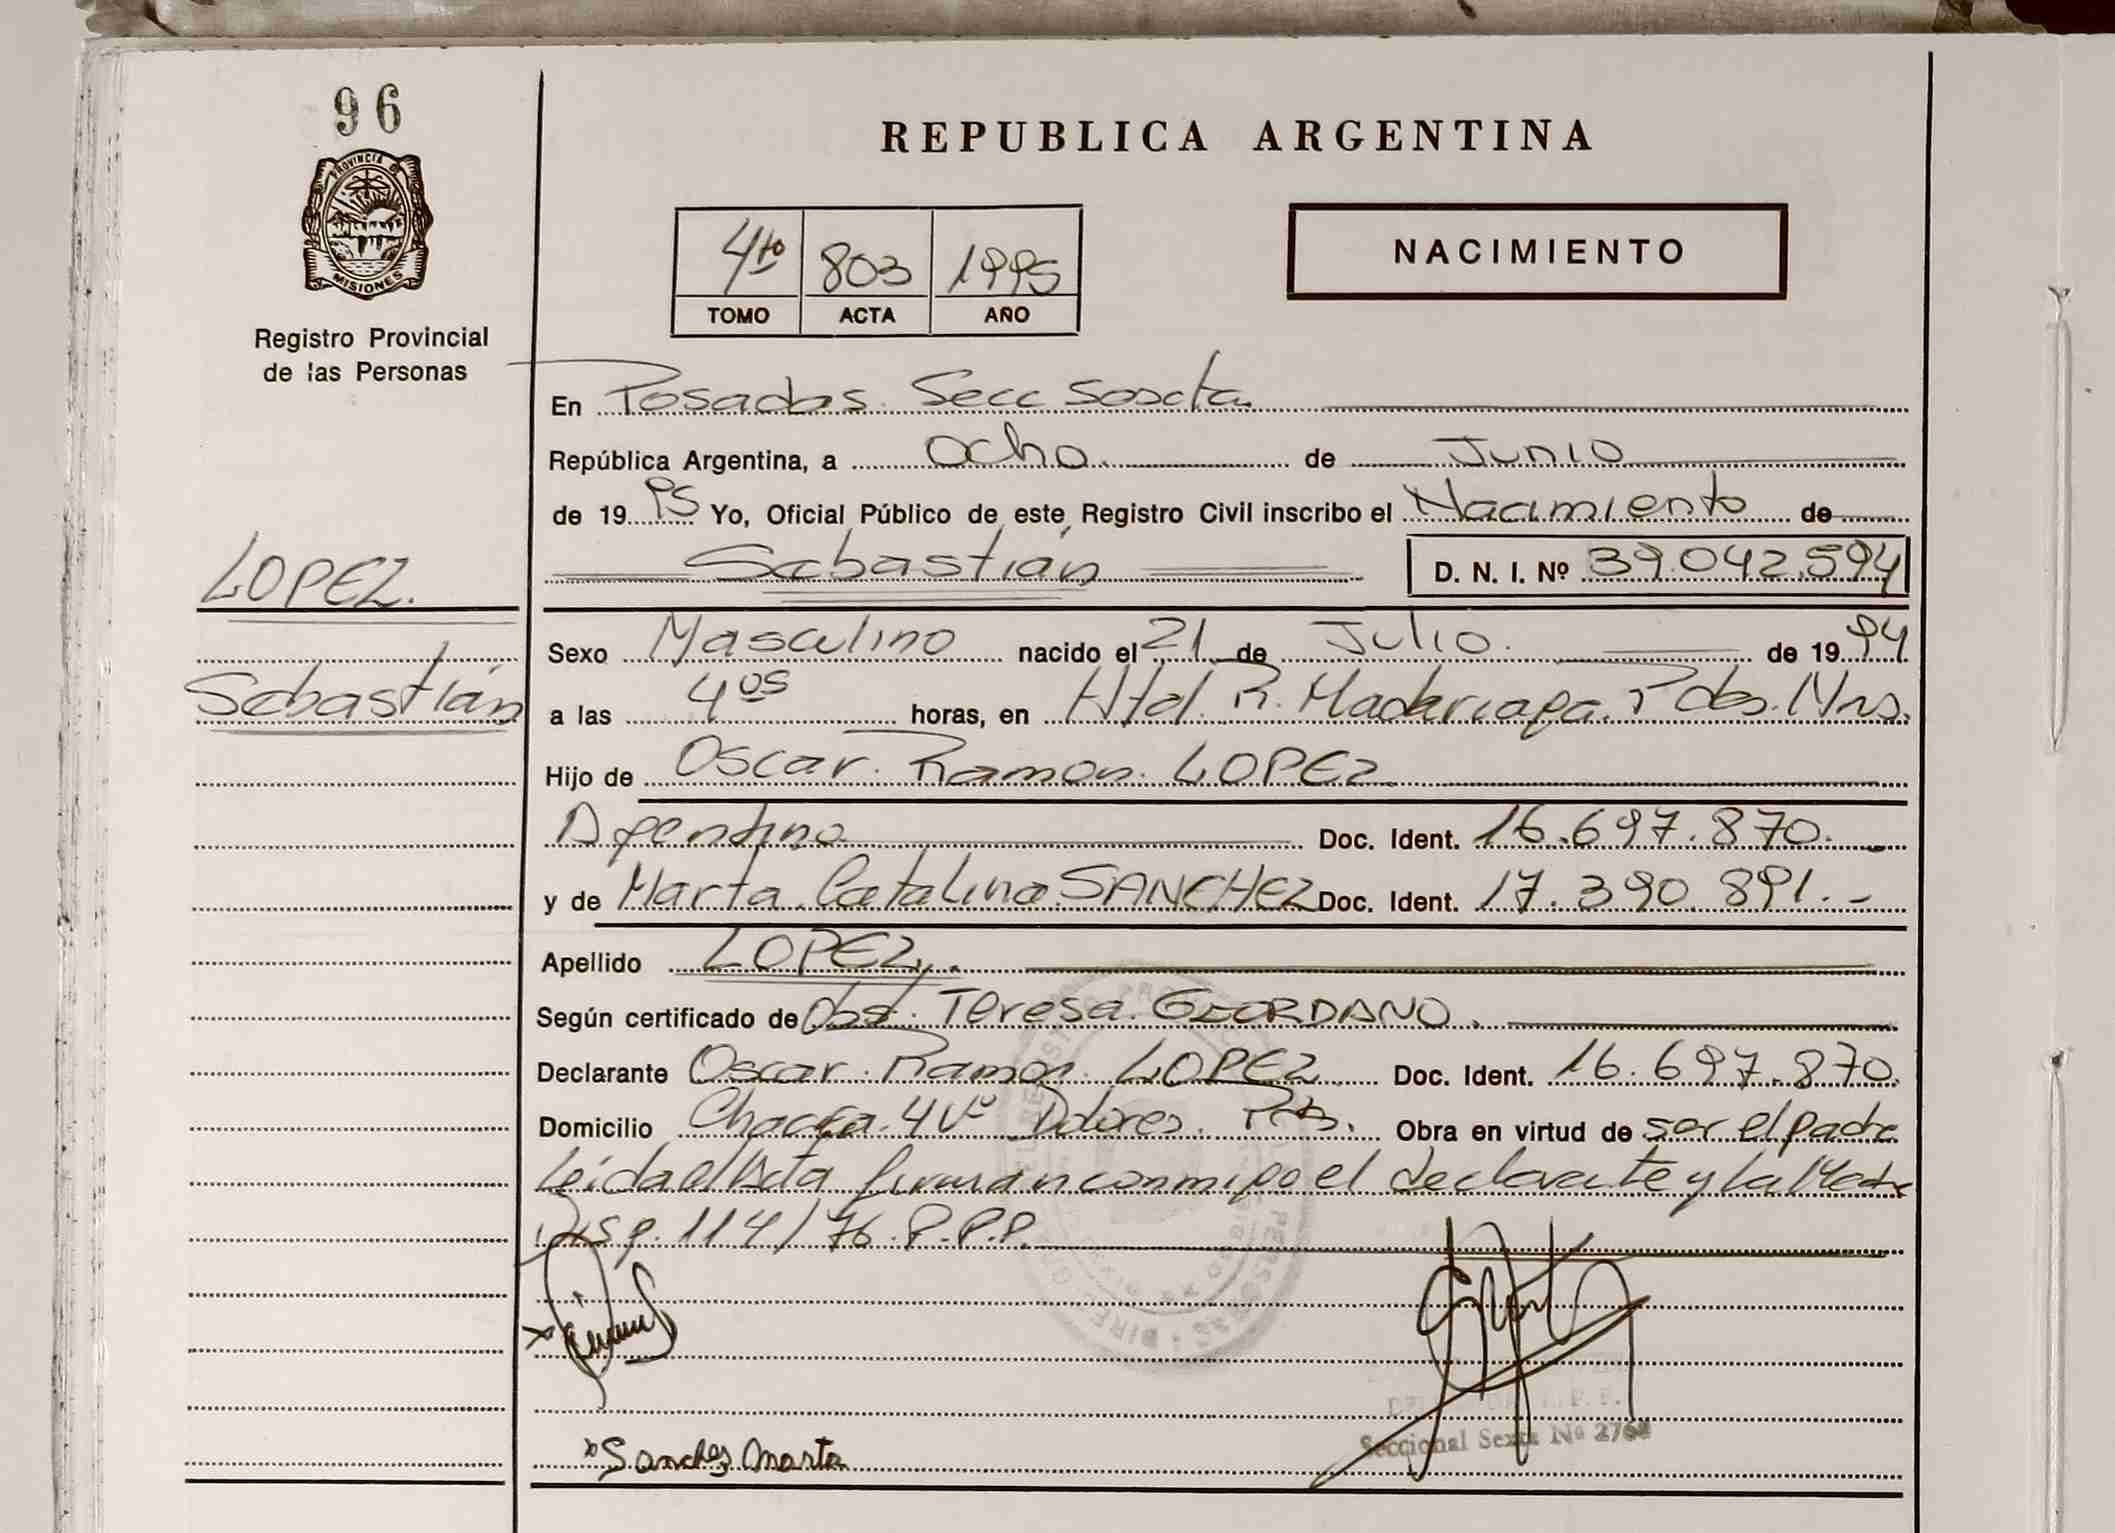 96
PROVINCIA DE
MISIONES
Registro Provincial
de las Personas
LOPEZ.
Sebastián
REPUBLICA ARGENTINA
4to 803 1995
TOMO ACTA AÑO
NACIMIENTO
En Posadas. Secc Sexta
República Argentina, a ocho. de Junio
de 19 95 Yo, Oficial Público de este Registro Civil inscribo el Nacimiento de
Sebastián D. N. I. Nº 39.042.594
Sexo Masculino nacido el 21 de Julio. de 19 94
a las 4 05 horas, en Htal. R. Madariaga. Pdas. Mns.
Hijo de Oscar. Ramon. LOPEZ
Argentino Doc. Ident. 16.697.870.-
y de Marta. Catalina. SANCHEZ Doc. Ident. 17.390.891.-
Apellido LOPEZ.
Según certificado de Obst. Teresa. GIORDANO.
Declarante Oscar. Ramon. LOPEZ Doc. Ident. 16.697.870.
Domicilio Chacra. 4 Dolores. Obra en virtud de ser el padre
Leida el Acta firman conmigo el declarante y la Madre
Disp. 114/76.
Sanchez Marta
Seccional Sexta Nº